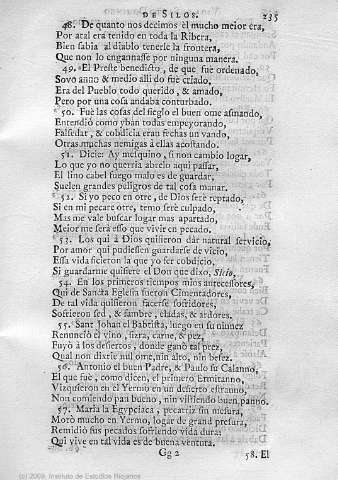 DE SILOS. 235
48. De quanto nos decimos el mucho meior era,
Por atal era tenido en toda la Ribera,
Bien sabia al diablo tenerle la frontera,
Que non lo engannasse por ninguna manera.
49. El Preste benedicto, de que fue ordenado,
Sovo anno & medio alli do fue criado,
Era del Pueblo todo querido, & amado,
Pero por una cosa andaba conturbado.
50. Fue las cosas del sieglo el buen ome asmando,
Entendió como yban todas empeyorando,
Falsedat, & cobdicia eran fechas un vando,
Otras muchas nemigas á ellas acostando.
51. Dicie: Ay mesquino, si non cambio logar,
Lo que yo no querria abelo aqui passar,
El lino cabel fuego malo es de guardar,
Suelen grandes peligros de tal cosa manar.
52. Si yo peco en otre, de Dios seré reptado,
Si en mi pecare otre, temo seré culpado,
Mas me vale buscar logar mas apartado,
Meior me será esso que vivir en pecado.
53. Los qui á Dios quisieron dár natural servicio,
Por amor qui pudiessen guardarse de vicio,
Essa vida ficieron la que yo fer cobdicio,
Si guardarme quisiere el Don que dixo, Sitio,
54. En los primeros tiempos nuios antecessores,
Qui de Sancta Eglesia fueron Cimentadores,
De tal vida quisieron facerse sofridores,
Sofrieron sed, & fambre, eladas, & ardores.
55. Sant Johan el Babtista, luego en su ninnez
Renunció el vino, sizra, carne, & pez,
Fuyó á los desiertos, donde ganó tal prez,
Qual non dizrie nul ome, nin alto, nin befez.
56. Antonio el buen Padre, & Paulo su Calanno,
El que fué, como dicen, el primero Ermitanno,
Visquieron en el Yermo en un desierto estranno,
Non comiendo pan bueno, nin vistiendo buen panno.
57. Maria la Egypciaca, pecatriz sin mesura,
Moró mucho en Yermo, logar de grand presura,
Remidió sus pecados sofriendo vida dura:
Qui vive en tal vida es de buena ventura.
Gg 2 58. El
(c) 2009, Instituto de Estudios Riojanos